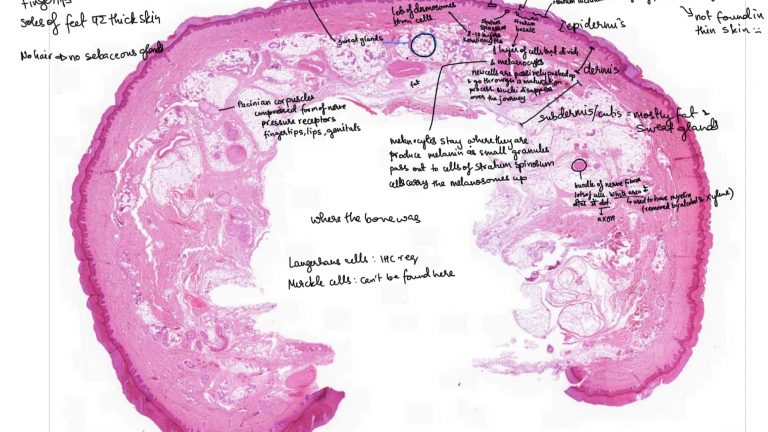 fingertips
soles of feet
thick skin
No hair → no sebaceous glands
sweat glands
lots of desmosomes
between cells
stratum
spinosum
8-10 layers
keratinocytes
stratum
basale
epidermis
↳ not found in
thin skin
1 layer of cells that divide
& melanocytes
new cells are passively pushed up
& go through a maturation
process. Nuclei disappear
over the journey
dermis
fat
subdermis/cutis = mostly fat &
sweat glands
Pacinian corpuscles
compressed form of nerve
pressure receptors
fingertips, lips, genitals
Melanocytes stay where they are
produce melanin as small granules
pass out to cells of stratum spinosum
cells carry the melanosomes up
bundle of nerve fibres
lots of
white area
axon
↳ used to have myelin
(removed by alcohol & xylene)
where the bone was
Langerhans cells : IHC req
Merckle cells : can't be found here